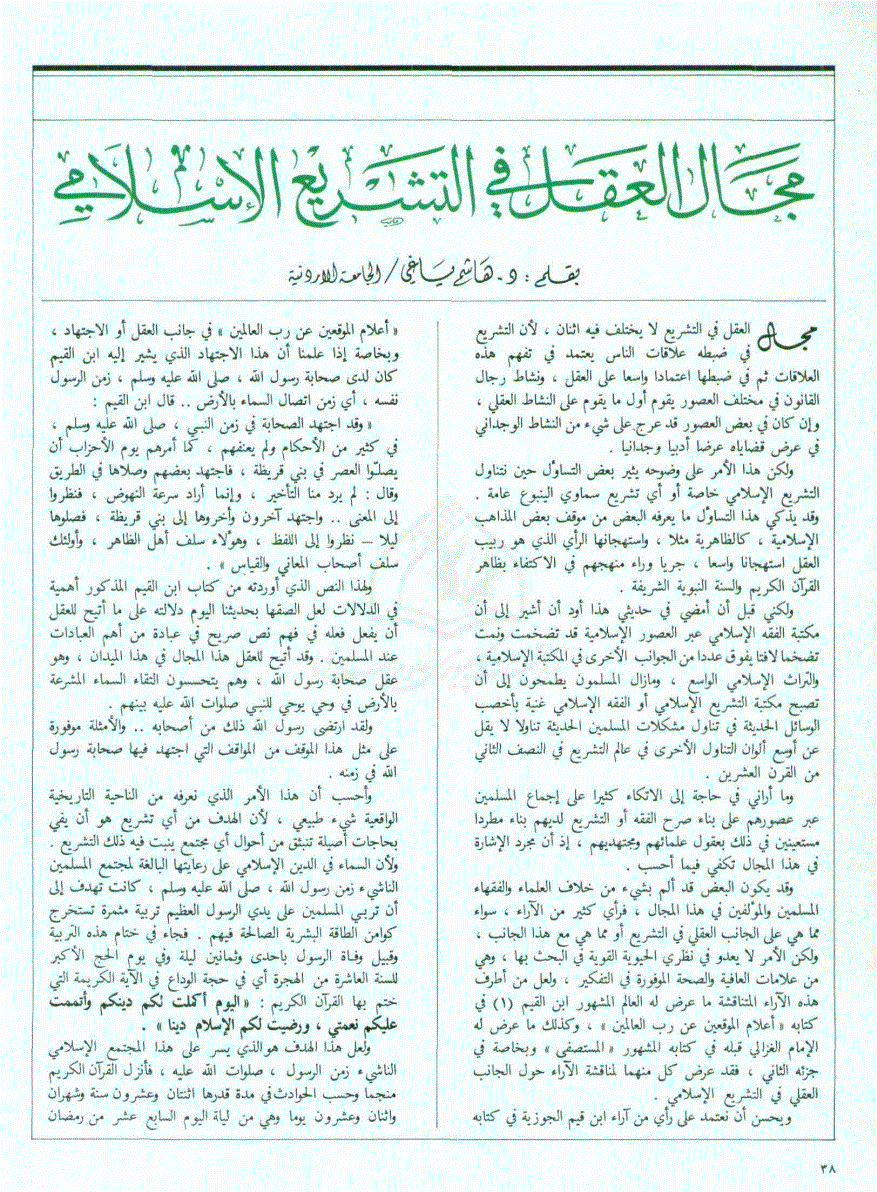 مجال العقل في التشريع الإسلامي
بقلم : د. هاشم ياغي / الجامعة الاردنية
مجال العقل في التشريع لا يختلف فيه اثنان ، لأن التشريع
في ضبطه علاقات الناس يعتمد في تفهم هذه
العلاقات ثم في ضبطها اعتمادا واسعا على العقل ، ونشاط رجال
القانون في مختلف العصور يقوم أول ما يقوم على النشاط العقلي ،
وإن كان في بعض العصور قد عرج على شيء من النشاط الوجداني
في عرض قضاياه عرضا أدبيا وجدانيا .
ولكن هذا الأمر على وضوحه يثير بعض التساؤل حين نتناول
التشريع الإسلامي خاصة أو أي تشريع سماوي الينبوع عامة .
وقد يذكي هذا التساؤل ما يعرفه البعض من موقف بعض المذاهب
الإسلامية ، كالظاهرية مثلا ، واستهجانها الرأي الذي هو ربيب
العقل استهجانا واسعا ، جريا وراء منهجهم في الاكتفاء بظاهر
القرآن الكريم والسنة النبوية الشريفة .
ولكني قبل أن أمضي في حديثي هذا أود أن أشير إلى أن
مكتبة الفقه الإسلامي عبر العصور الإسلامية قد تضخمت ونمت
تضخما لافتا يفوق عددا من الجوانب الأخرى في المكتبة الإسلامية ،
والتراث الإسلامي الواسع ، ومازال المسلمون يطمحون إلى أن
تصبح مكتبة التشريع الإسلامي أو الفقه الإسلامي غنية بأخصب
الوسائل الحديثة في تناول مشكلات المسلمين الحديثة تناولا لا يقل
عن أوسع ألوان التناول الأخرى في عالم التشريع في النصف الثاني
من القرن العشرين .
وما أراني في حاجة إلى الاتكاء كثيرا على إجماع المسلمين
عبر عصورهم على بناء صرح الفقه أو التشريع لديهم بناء مطردا
مستعينين في ذلك بعقول علمائهم ومجتهديهم ، إذ أن مجرد الإشارة
في هذا المجال تكفي فيما أحسب .
وقد يكون البعض قد ألم بشيء من خلاف العلماء والفقهاء
المسلمين والمؤلفين في هذا المجال ، فرأي كثير من الآراء ، سواء
مما هي على الجانب العقلي في التشريع أو مما هي مع هذا الجانب ،
ولكن الأمر لا يعدو في نظري الحيوية القوية في البحث بها ، وهي
من علامات العافية والصحة الموفورة في التفكير ، ولعل من أطرف
هذه الآراء المتناقشة ما عرض له العالم المشهور ابن القيم (١) في
كتابه « أعلام الموقعين عن رب العالمين » ، وكذلك ما عرض له
الإمام الغزالي قبله في كتابه المشهور « المستصفى » وبخاصة في
جزئه الثاني ، فقد عرض كل منهما لمناقشة الآراء حول الجانب
العقلي في التشريع الإسلامي .
ويحسن أن نعتمد على رأي من آراء ابن قيم الجوزية في كتابه
« أعلام الموقعين عن رب العالمين » في جانب العقل أو الاجتهاد ،
وبخاصة إذا علمنا أن هذا الاجتهاد الذي يشير إليه ابن القيم
كان لدى صحابة رسول الله ، صلى الله عليه وسلم ، زمن الرسول
نفسه ، أي زمن اتصال السماء بالأرض .. قال ابن القيم :
« وقد اجتهد الصحابة في زمن النبي ، صلى الله عليه وسلم ،
في كثير من الأحكام ولم يعنفهم ، كما أمرهم يوم الأحزاب أن
يصلّوا العصر في بني قريظة ، فاجتهد بعضهم وصلاها في الطريق
وقال : لم يرد منا التأخير ، وإنما أراد سرعة النهوض ، فنظروا
إلى المعنى .. واجتهد آخرون وأخروها إلى بني قريظة ، فصلوها
ليلا — نظروا إلى اللفظ ، وهؤلاء سلف أهل الظاهر ، وأولئك
سلف أصحاب المعاني والقياس » .
ولهذا النص الذي أوردته من كتاب ابن القيم المذكور أهمية
في الدلالات لعل الصقها بحديثنا اليوم دلالته على ما أتيح للعقل
أن يفعل فعله في فهم نص صريح في عبادة من أهم العبادات
عند المسلمين . وقد أتيح للعقل هذا المجال في هذا الميدان ، وهو
عقل صحابة رسول الله ، وهم يتحسسون التقاء السماء المشرعة
بالأرض في وحي يوحي للنبي صلوات الله عليه بينهم .
ولقد ارتضى رسول الله ذلك من أصحابه .. والأمثلة موفورة
على مثل هذا الموقف من المواقف التي اجتهد فيها صحابة رسول
الله في زمنه .
وأحسب أن هذا الأمر الذي نعرفه من الناحية التاريخية
الواقعية شيء طبيعي ، لأن الهدف من أي تشريع هو أن يفي
بحاجات أصيلة تنبثق من أحوال أي مجتمع ينبت فيه ذلك التشريع .
ولأن السماء في الدين الإسلامي على رعايتها البالغة لمجتمع المسلمين
الناشيء زمن رسول الله ، صلى الله عليه وسلم ، كانت تهدف إلى
أن تربي المسلمين على يدي الرسول العظيم تربية مثمرة تستخرج
كوامن الطاقة البشرية الصالحة فيهم . فجاء في ختام هذه التربية
وقبيل وفاة الرسول باحدى وثمانين ليلة وفي يوم الحج الأكبر
للسنة العاشرة من الهجرة أي في حجة الوداع في الآية الكريمة التي
ختم بها القرآن الكريم : « اليوم أكملت لكم دينكم وأتممت
عليكم نعمتي ، ورضيت لكم الإسلام دينا » .
ولعل هذا الهدف هو الذي يسر على هذا المجتمع الإسلامي
الناشيء زمن الرسول ، صلوات الله عليه ، فأنزل القرآن الكريم
منجما وحسب الحوادث في مدة قدرها اثنتان وعشرون سنة وشهران
واثنان وعشرون يوما وهي من ليلة اليوم السابع عشر من رمضان
٣٨